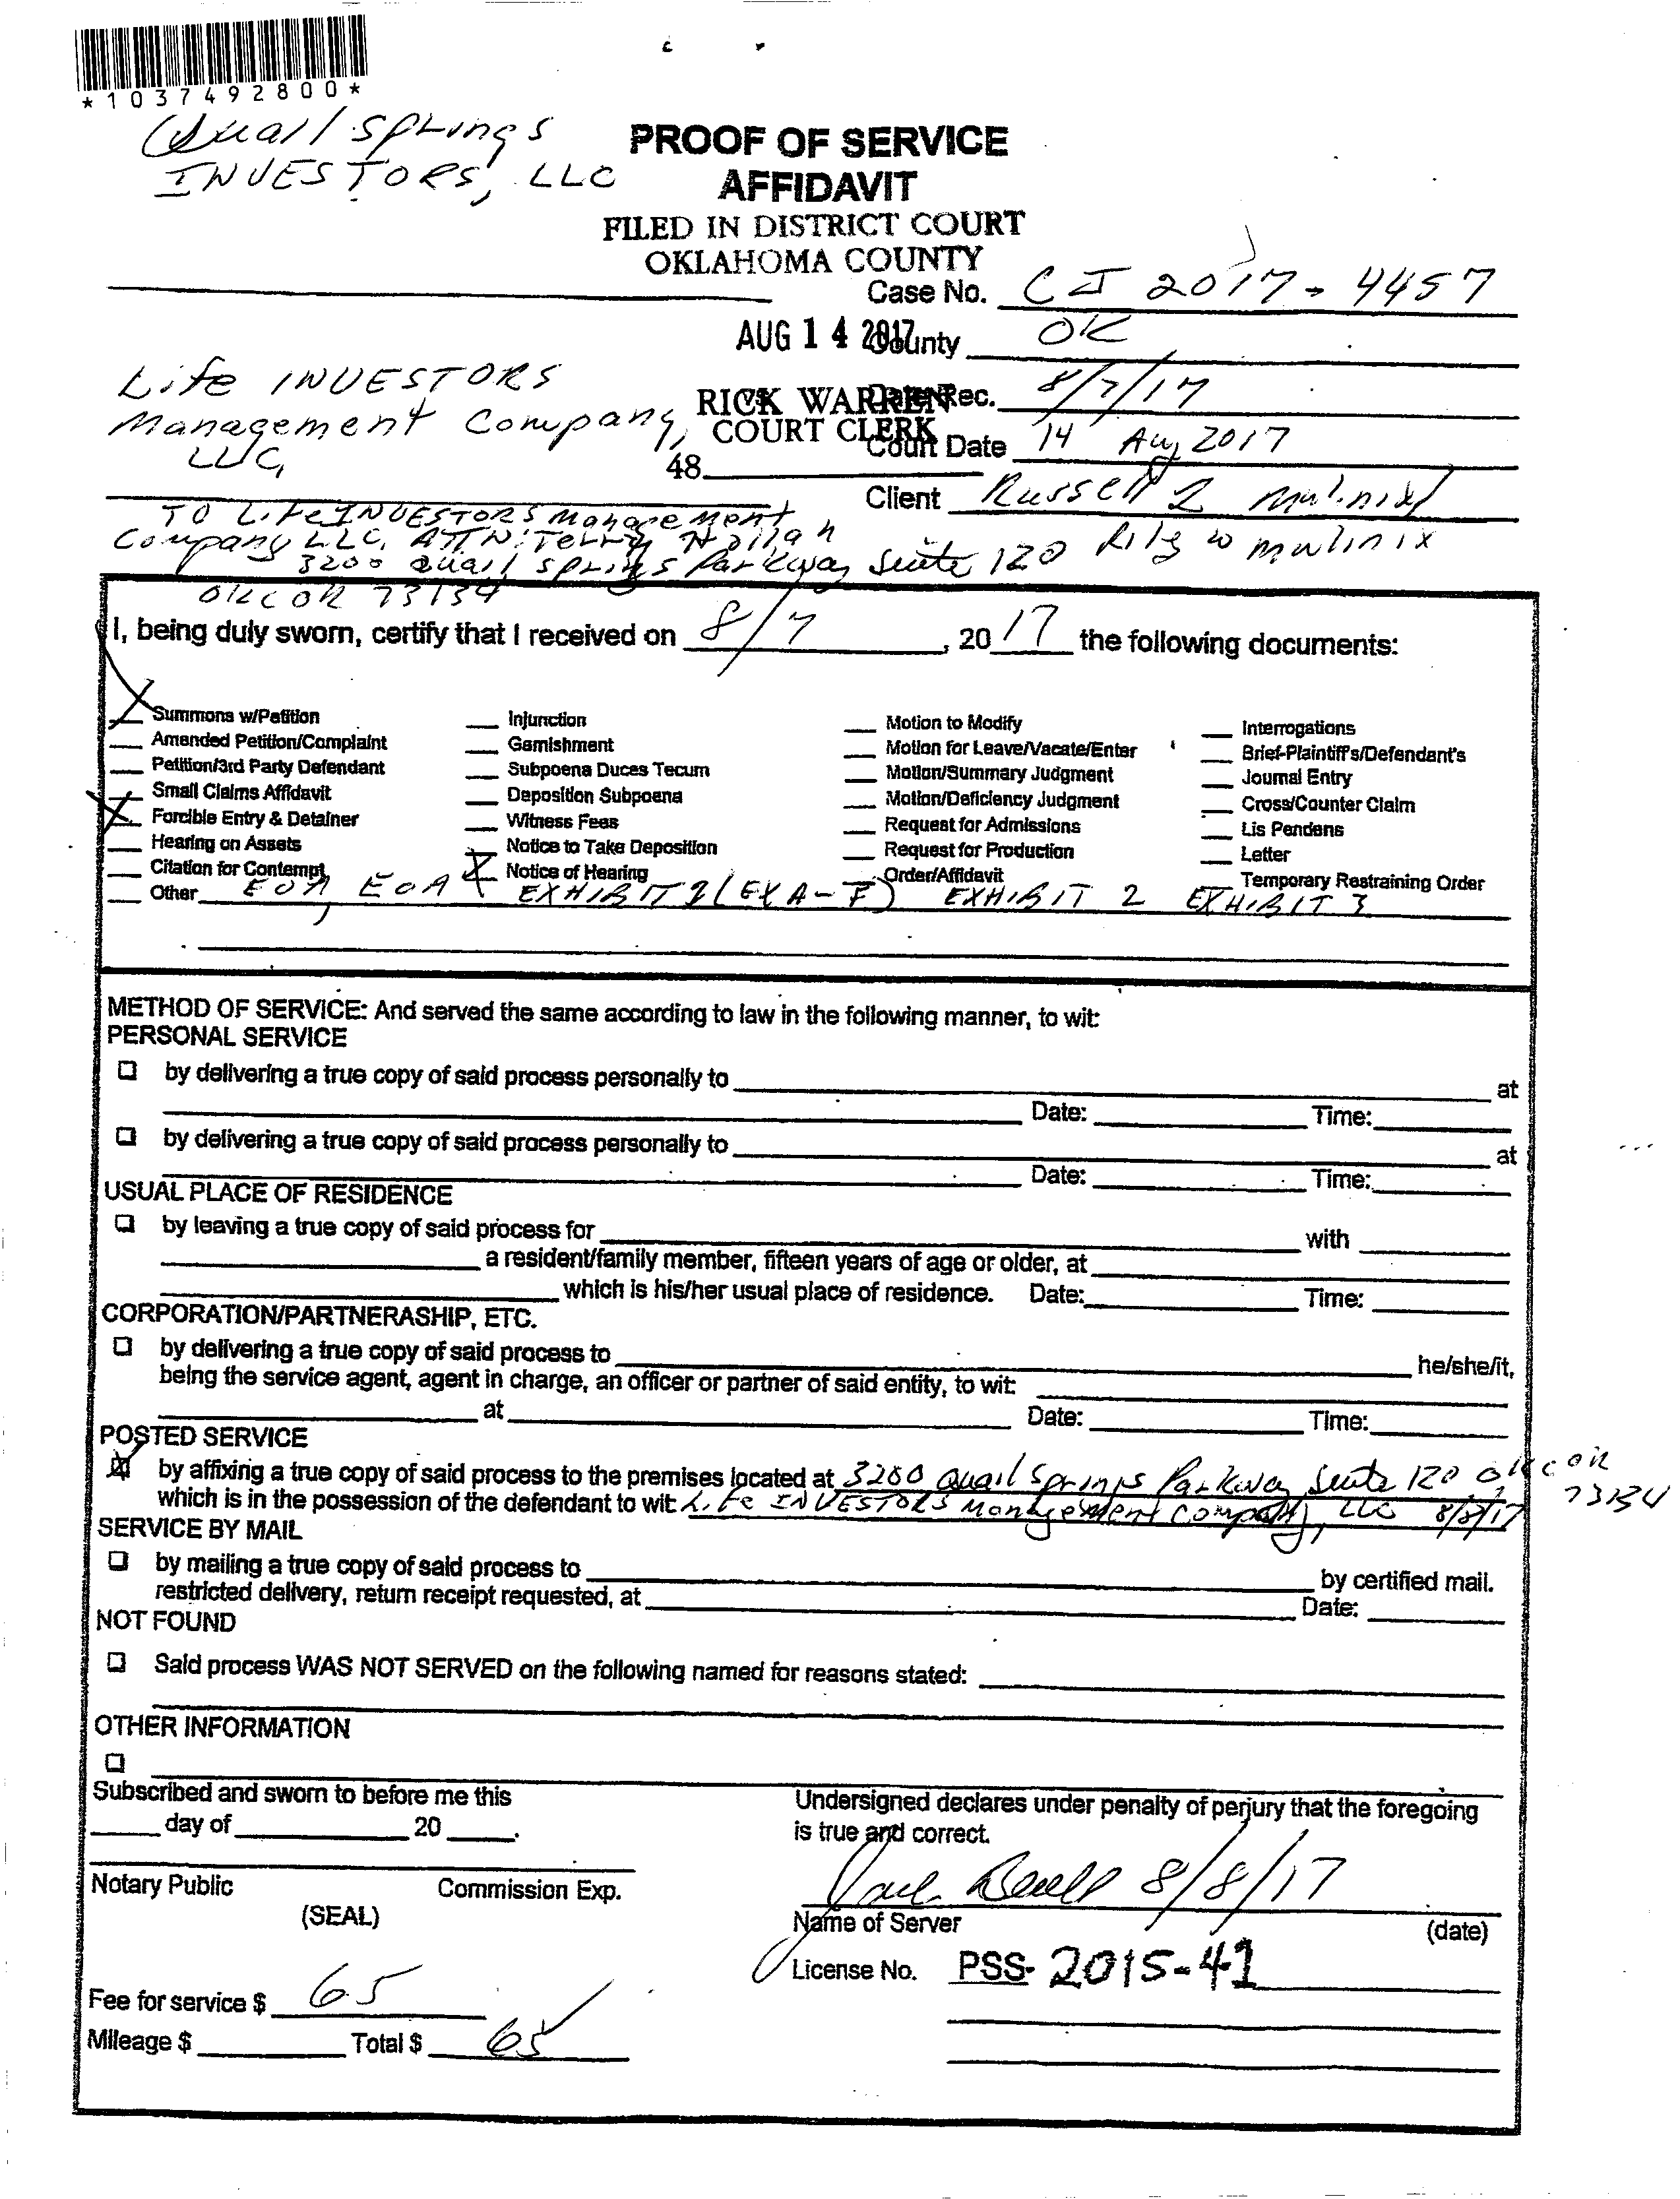 *1037492800*
Quail Springs
INVESTORS, LLC
PROOF OF SERVICE
AFFIDAVIT
FILED IN DISTRICT COURT
OKLAHOMA COUNTY
Case No. CJ 2017-4457
AUG 14 2017
County OK
Life INVESTORS
Management Company,
LLC,
vs.
RICK WARREN
COURT CLERK
48
Date Rec. 8/7/17
Court Date 14 Aug 2017
Client Russell L Mulinix
Riley W Mulinix
TO Life INVESTORS Management
Company LLC, ATTN: Terry
3200 Quail Springs Parkway Suite 120
OKC OK 73134
I, being duly sworn, certify that I received on 8/7, 2017 the following documents:
X Summons w/Petition
Amended Petition/Complaint
Petition/3rd Party Defendant
Small Claims Affidavit
X Forcible Entry & Detainer
Hearing on Assets
Citation for Contempt
Injunction
Garnishment
Subpoena Duces Tecum
Deposition Subpoena
Witness Fees
Notice to Take Deposition
X Notice of Hearing
Motion to Modify
Motion for Leave/Vacate/Enter
Motion/Summary Judgment
Motion/Deficiency Judgment
Request for Admissions
Request for Production
Order/Affidavit
Interrogations
Brief-Plaintiff's/Defendant's
Journal Entry
Cross/Counter Claim
Lis Pendens
Letter
Temporary Restraining Order
Other EOA, EOA EXHIBIT 1 (EX A-F) EXHIBIT 2 EXHIBIT 3
METHOD OF SERVICE: And served the same according to law in the following manner, to wit:
PERSONAL SERVICE
by delivering a true copy of said process personally to at
Date: Time:
by delivering a true copy of said process personally to at
Date: Time:
USUAL PLACE OF RESIDENCE
by leaving a true copy of said process for with
a resident/family member, fifteen years of age or older, at
which is his/her usual place of residence. Date: Time:
CORPORATION/PARTNERASHIP, ETC.
by delivering a true copy of said process to he/she/it,
being the service agent, agent in charge, an officer or partner of said entity, to wit:
at Date: Time:
POSTED SERVICE
X by affixing a true copy of said process to the premises located at 3200 Quail Springs Parkway Suite 120, OKC OK 73134
which is in the possession of the defendant to wit: Life INVESTORS Management Company, LLC 8/8/17
SERVICE BY MAIL
by mailing a true copy of said process to by certified mail.
restricted delivery, return receipt requested, at Date:
NOT FOUND
Said process WAS NOT SERVED on the following named for reasons stated:
OTHER INFORMATION
Subscribed and sworn to before me this
day of 20 .
Notary Public Commission Exp.
(SEAL)
Undersigned declares under penalty of perjury that the foregoing
is true and correct.
8/8/17
Name of Server (date)
License No. PSS-2015-41
Fee for service $ 65
Mileage $ Total $ 65